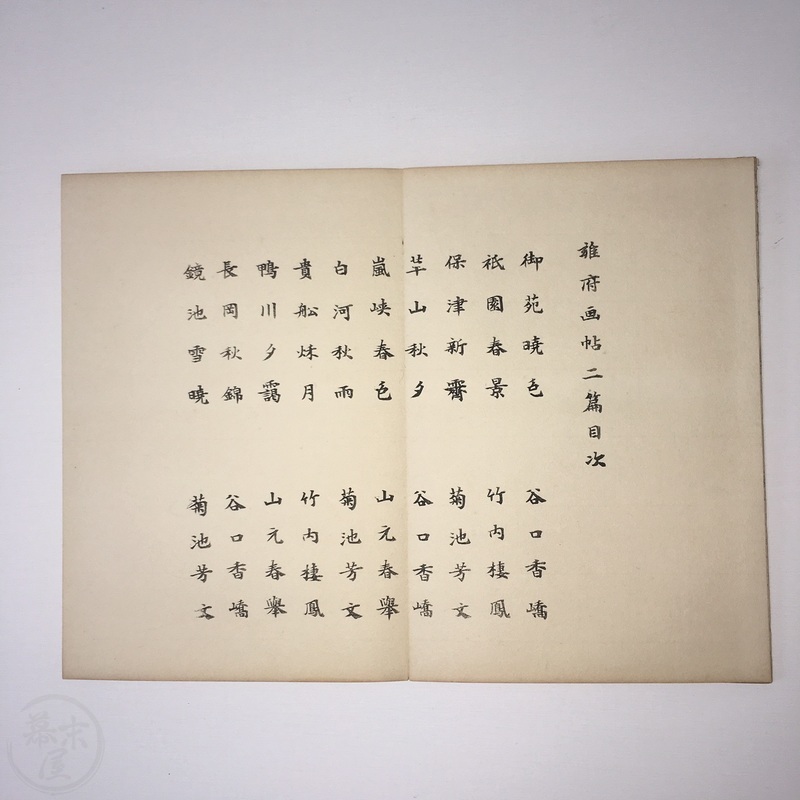 雍府画帖二篇目次
御苑暁色 谷口香嶠
祇園春景 竹内棲鳳
保津新霽 菊池芳文
華山秋夕 谷口香嶠
嵐峡春色 山元春舉
白河秋雨 菊池芳文
貴船秌月 竹内棲鳳
鴨川夕靄 山元春舉
長岡秋錦 谷口香嶠
鏡池雪暁 菊池芳文
幕末屋